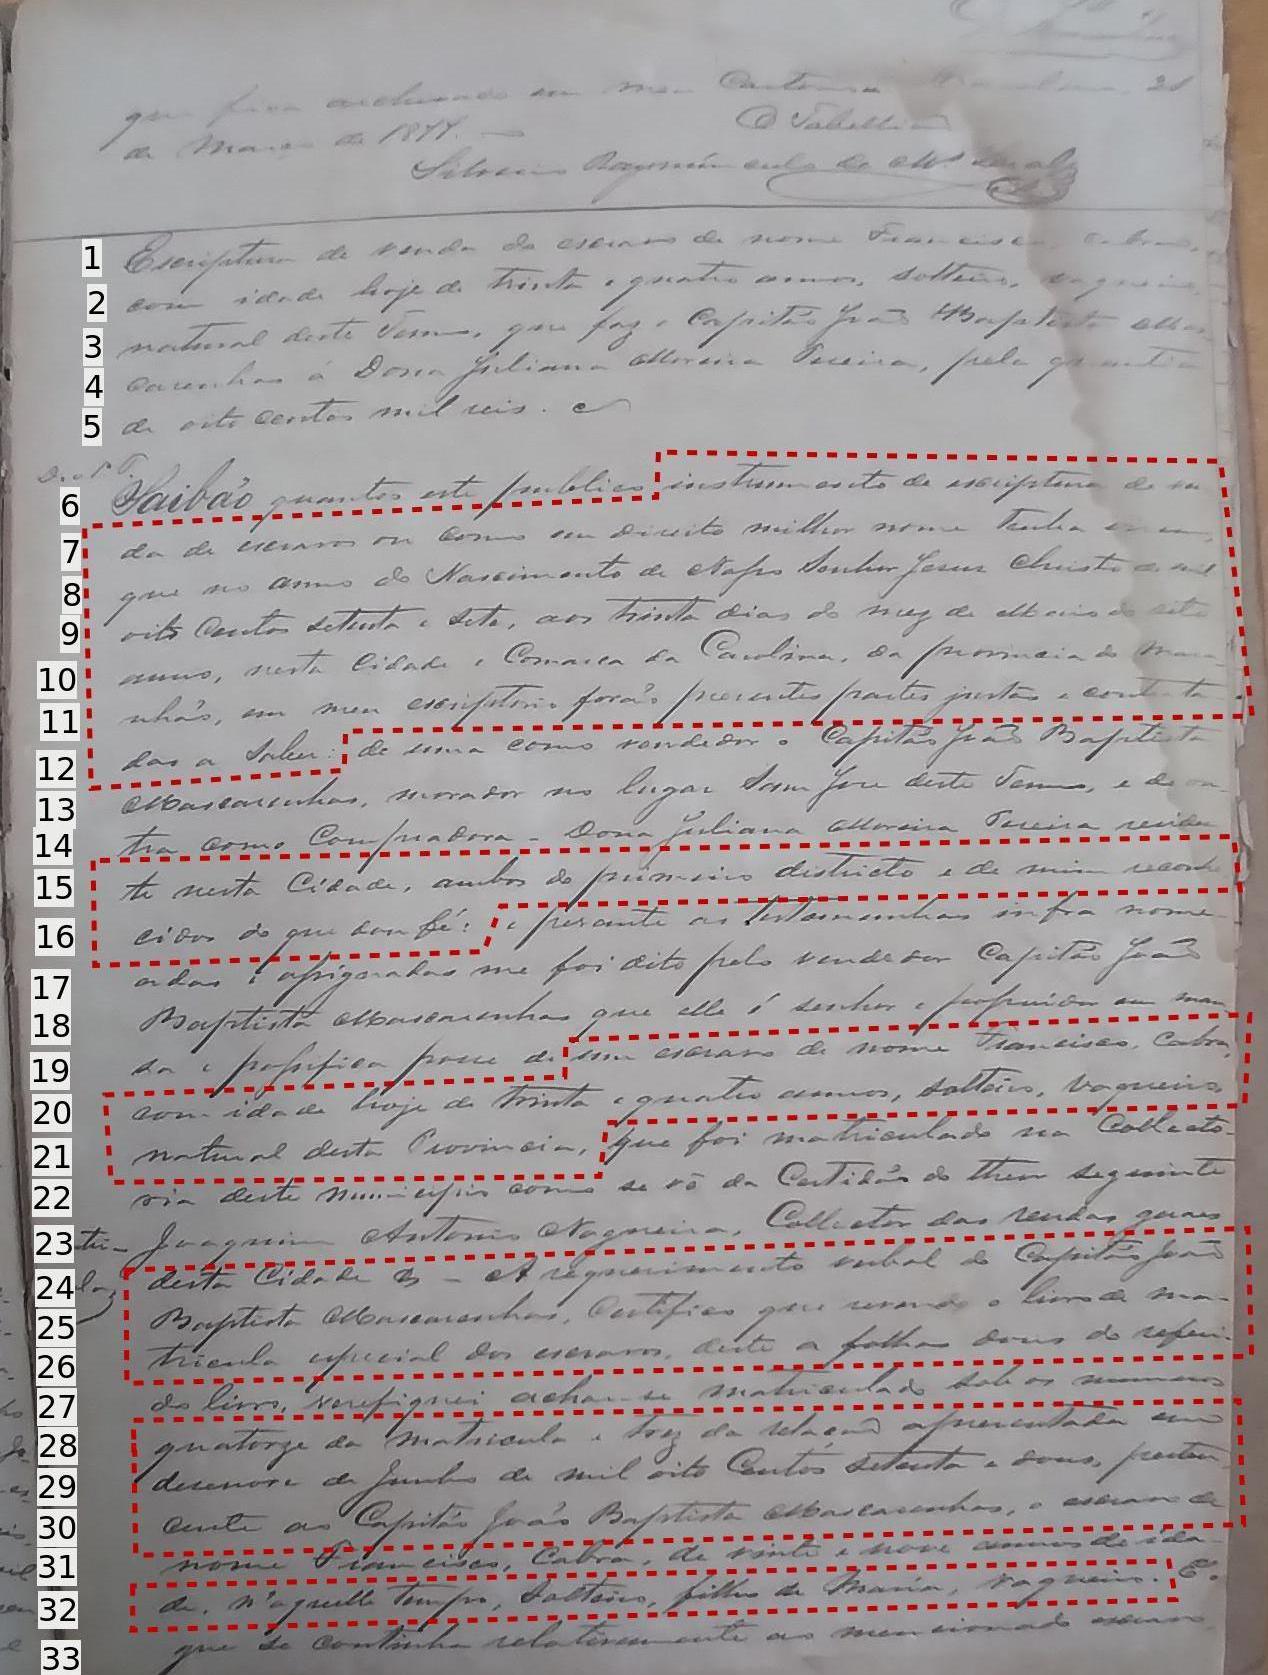 que fica archivado em meu Cartorio. Carolina, 21
de Março de 1877.
O Tabellião
1 Escriptura de venda do escravo de nome Francisco, cabra,
2 com idade hoje de trinta e quatro annos, solteiro, vaqueiro,
3 natural deste Termo, que faz o Capitão João Baptista Mas
4 carenhas á Dona Juliana Moreira Pereira, pela quantia
5 de oito centos mil reis.
6 Saibão quantos este publico instrumento de escriptura de ven
7 da de escravos ou como em direito milhor nome tenha virem,
8 que no anno do Nascimento de Nosso Senhor Jesus Christo de mil
9 oito centos setenta e sete, aos trinta dias do mez de Maio do dito
10 anno, nesta Cidade e Comarca da Carolina, da provincia do Mara-
11 nhão, em meu escriptorio forão presentes partes justas e contrata
12 das a saber: de uma como vendedor o Capitão João Baptista
13 Mascarenhas, morador no lugar Sam Jose deste Termo, e de ou-
14 tra como Compradora - Dona Juliana Moreira Pereira residen
15 te nesta Cidade, ambos do primeiro districto e de mim reconhe
16 cidos do que dou fé: e perante as testamunhas infra nome-
17 adas e apignadas me foi dito pelo vendedor Capitão João
18 Baptista Mascarenhas que elle é senhor e possuidor em man
19 sa e passifica posse de um escravo de nome Francisco, Cabra,
20 com idade hoje de trinta e quatro annos, solteiro, vaqueiro
21 natural desta Provincia, que foi matriculado na Collecto-
22 ria deste municipio como se vê da Certidão do theor seguinte
23 Joaquim Antonio Nogueira, Collector das rendas geraes
24 desta Cidade & - A requerimento verbal do Capitão João
25 Baptista Mascarenhas, Certifico que revendo o livro de ma-
26 tricula especial dos escravos, deste a folhas dous do referi-
27 do livro, verefiquei achar-se matriculado sob os numeros
28 quatorze da matricula e trez da relação apresentada em
29 desenove de Junho de mil oito Centos setenta e dous, perten
30 cente ao Capitão João Baptista Mascarenhas, o escravo de
31 nome Francisco, Cabra, de vinte e nove annos de ida-
32 de, n'aquelle tempo, Solteiro, filho de Maria, vaqueiro. E o
33 que se continha relativamente ao mencionado escravo